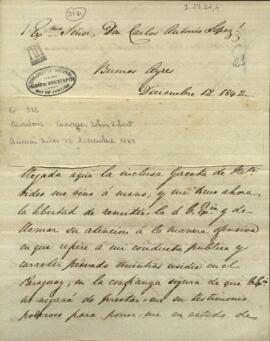 316
I-29,24,4
Exmo Señor, Don Carlos Antonio López!
Buenos Ayres
Diciembre 12 1842.
316
Buenos Aires 12 diciembre 1842
llegada aquí la inclusa Gaceta de
me vino á mano, y me tomo ahora
la libertad de remitirla á V. Exa y de
llamar su atención á la manera ofensiva
en que refiere á mi conducta publica y
caracter privado mientras residia en el
Paraguay, en la confianza segura de que V. Exa
no negará de prestar-me su testimonio
poderoso para poner-me en estado de